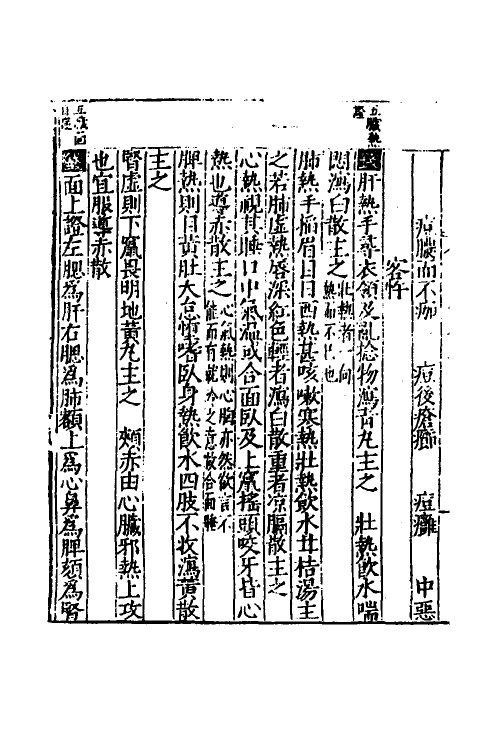 痘臟而不痂　痘後瘡癤　痘癰　中惡
客忤
五臟熱證
錢肝熱手尋衣領及亂捻物瀉青丸主之　壯熱飲水喘
悶瀉白散主之壯熱者一向熱而不已也
肺熱手搯眉目目西熱甚咳嗽寒熱壯熱飲水甘桔湯主
之若肺虛熱唇深紅色輕者瀉白散重者凉膈散主之
心熱視其睡口中氣溫或合面臥及上竄搖頭咬牙皆心
熱也導赤散主之心氣熱則心胸亦然欲言不能而有就冷之意故合面睡
脾熱則目黃肚大怠惰嗜臥身熱飲水四肢不收瀉黃散
主之
腎虛則下竄畏明地黃丸主之　頰赤由心臟邪熱上攻
也宜服導赤散
五臟面
錢面上證左腮為肝右腮為肺額上為心鼻為脾頦為腎